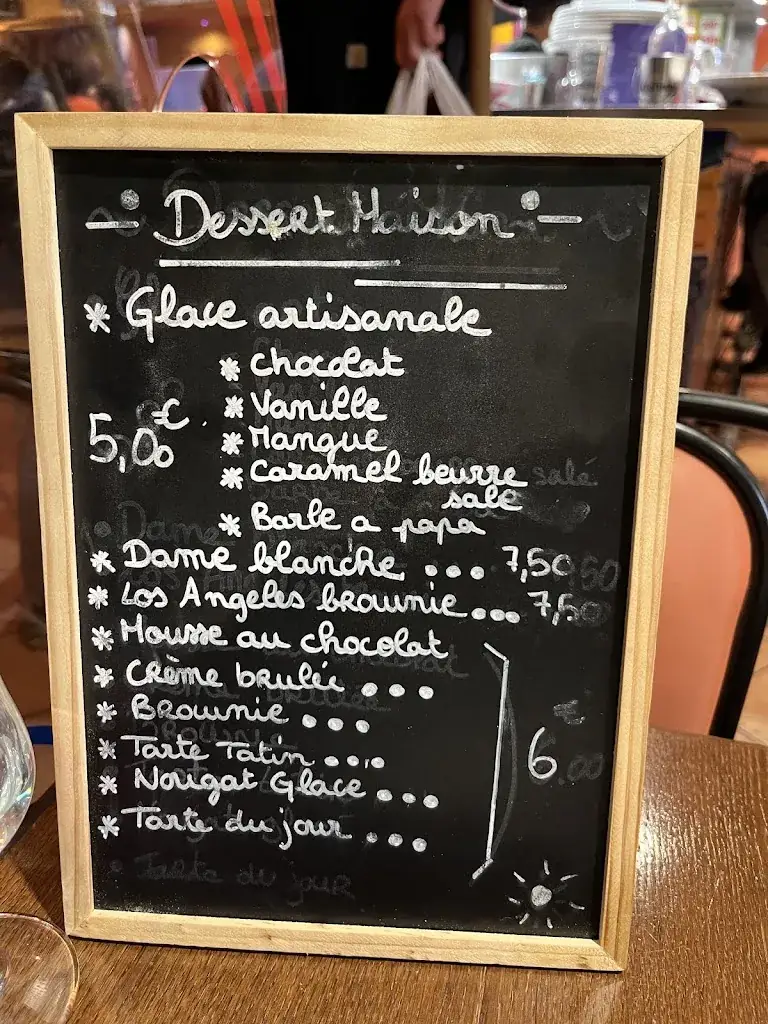 Dessert Maison
* Glace artisanale
* Chocolat
* Vanille
5,00 €.
* Mangue
* Caramel beurre
salé
* Barbe a papa
* Dame blanche ... 7,50
* Los Angeles brownie... 7,50
* Mousse au chocolat
* Crème brulée ...
* Brownie ...
6 €
* Tarte Tatin ....
* Nougat Glace ...
* Tarte du jour ...
Tarte du jour